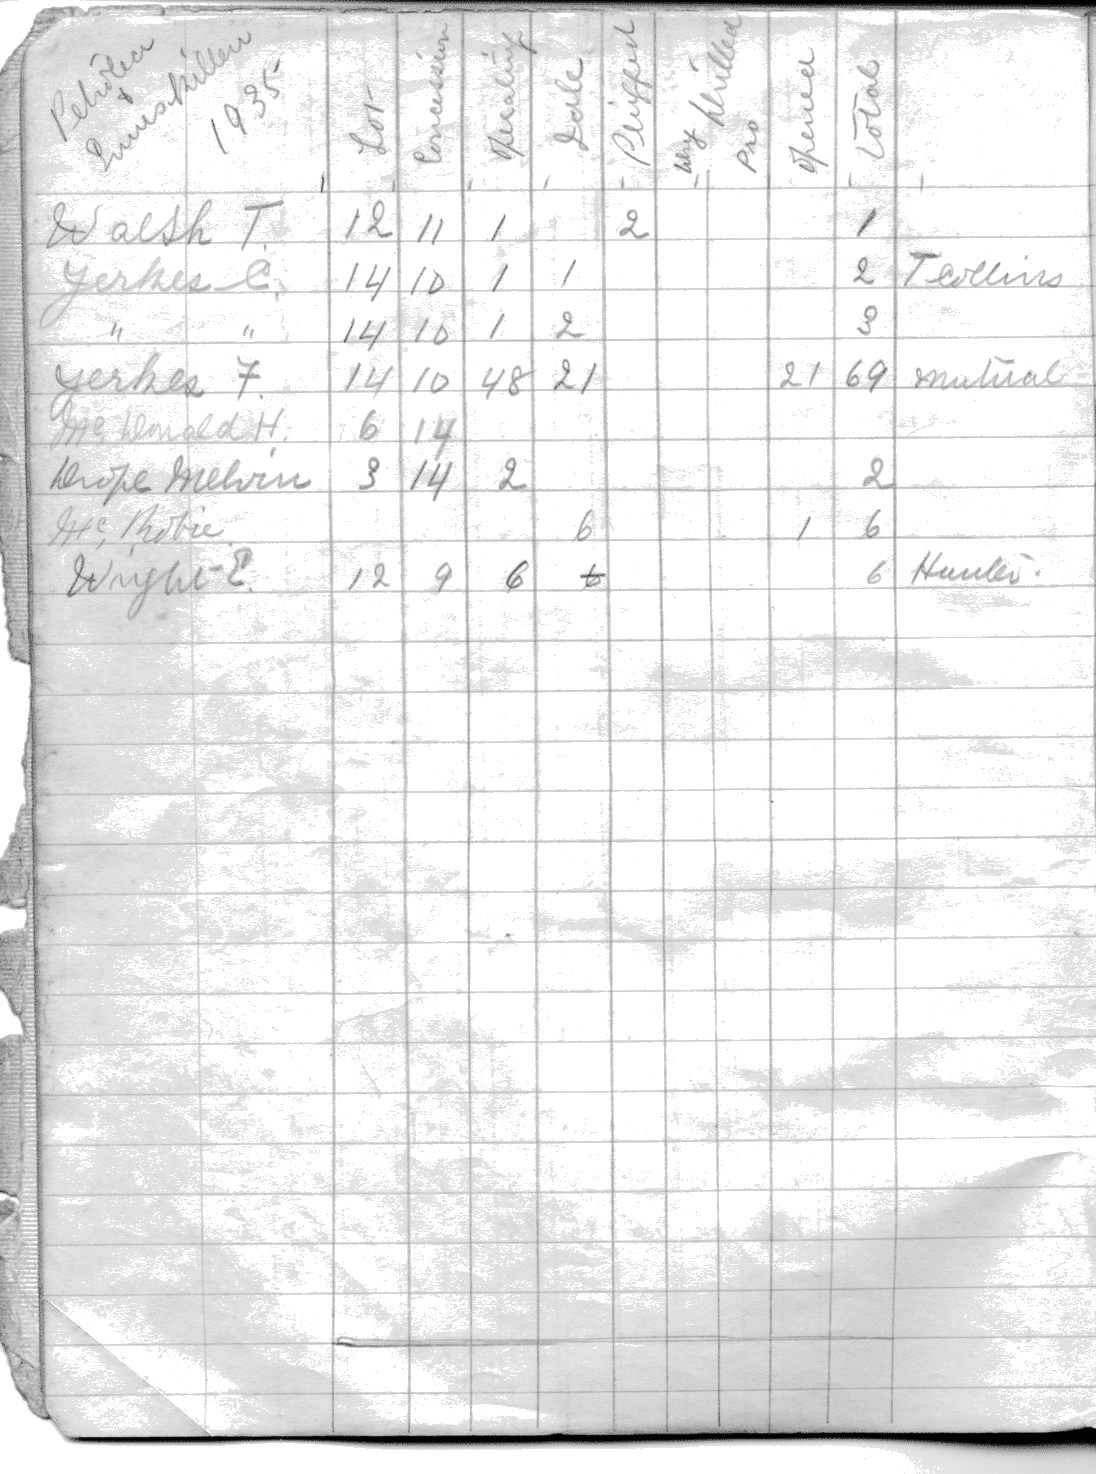 Petrolea & Enniskillen 1935
Lot Concession Operating Idle Plugged Dry Drilled Pro Opened Total
Walsh T. 12 11 1 2 1
Yerkes C. 14 10 1 1 2 T Collins
" " 14 10 1 2 3
Yerkes F. 14 10 48 21 21 69 Mutual
Mc Donald H. 6 14
Drope Melvin 3 14 2 2
Mc Robie. 6 1 6
Wright E. 12 9 6 6 6